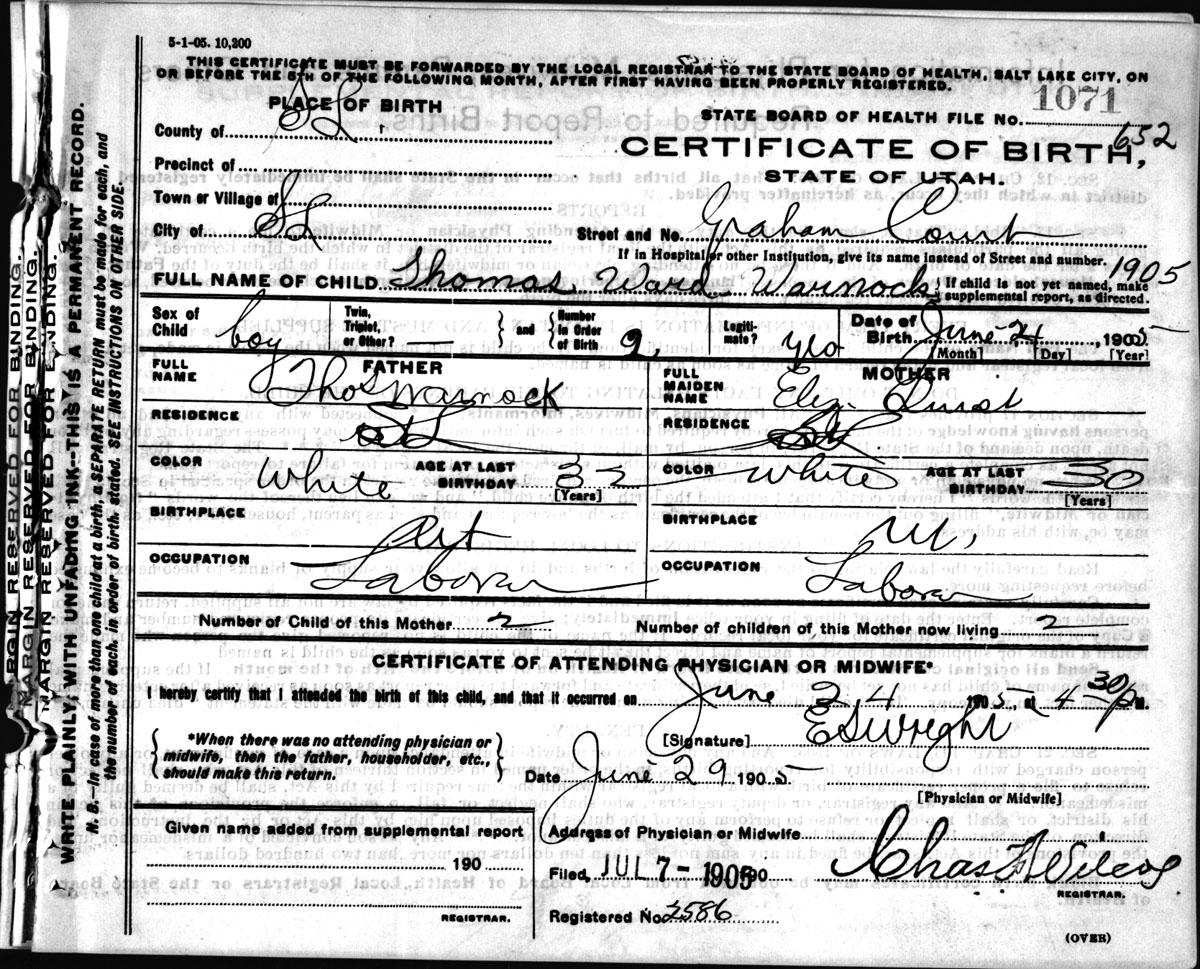 5-1-05. 10,200
THIS CERTIFICATE MUST BE FORWARDED BY THE LOCAL REGISTRAR TO THE STATE BOARD OF HEALTH, SALT LAKE CITY, ON
OR BEFORE THE 5TH OF THE FOLLOWING MONTH, AFTER FIRST HAVING BEEN PROPERLY REGISTERED.
1071
PLACE OF BIRTH
STATE BOARD OF HEALTH FILE NO.
652
County of SL
CERTIFICATE OF BIRTH,
STATE OF UTAH.
Precinct of
Town or Village of
City of SL
Street and No. Graham Court
If in Hospital or other Institution, give its name instead of Street and number.
1905
FULL NAME OF CHILD Thomas Ward Warnock
If child is not yet named, make
supplemental report, as directed.
Sex of Child boy
Twin, Triplet, or Other? —
and Number in Order of Birth
Legitimate? yes
Date of Birth June 24, 1905
[Month] [Day] [Year]
FATHER
FULL NAME Thos Warnock
RESIDENCE
COLOR White
AGE AT LAST BIRTHDAY 32
[Years]
BIRTHPLACE
OCCUPATION Laborer
MOTHER
FULL MAIDEN NAME Eliz
RESIDENCE
COLOR White
AGE AT LAST BIRTHDAY 30
[Years]
BIRTHPLACE Ut,
OCCUPATION Laborer
Number of Child of this Mother 2
Number of children of this Mother now living 2
CERTIFICATE OF ATTENDING PHYSICIAN OR MIDWIFE*
I hereby certify that I attended the birth of this child, and that it occurred on June 24 1905 at 4 30 P m.
*When there was no attending physician or
midwife, then the father, householder, etc.,
should make this return.
[Signature] ES Wright
Date June 29 1905
[Physician or Midwife]
Given name added from supplemental report
190
REGISTRAR.
Address of Physician or Midwife
Filed, JUL 7 - 1905 190
Chas Wilcox
REGISTRAR.
Registered No. 2586
(OVER)
MARGIN RESERVED FOR BINDING.
MARGIN RESERVED FOR BINDING.
MARGIN RESERVED FOR BINDING.
WRITE PLAINLY WITH UNFADING INK—THIS IS A PERMANENT RECORD.
N. B.—In case of more than one child at a birth, a SEPARATE RETURN must be made for each, and
the number of each, in order of birth, stated. SEE INSTRUCTIONS ON OTHER SIDE.